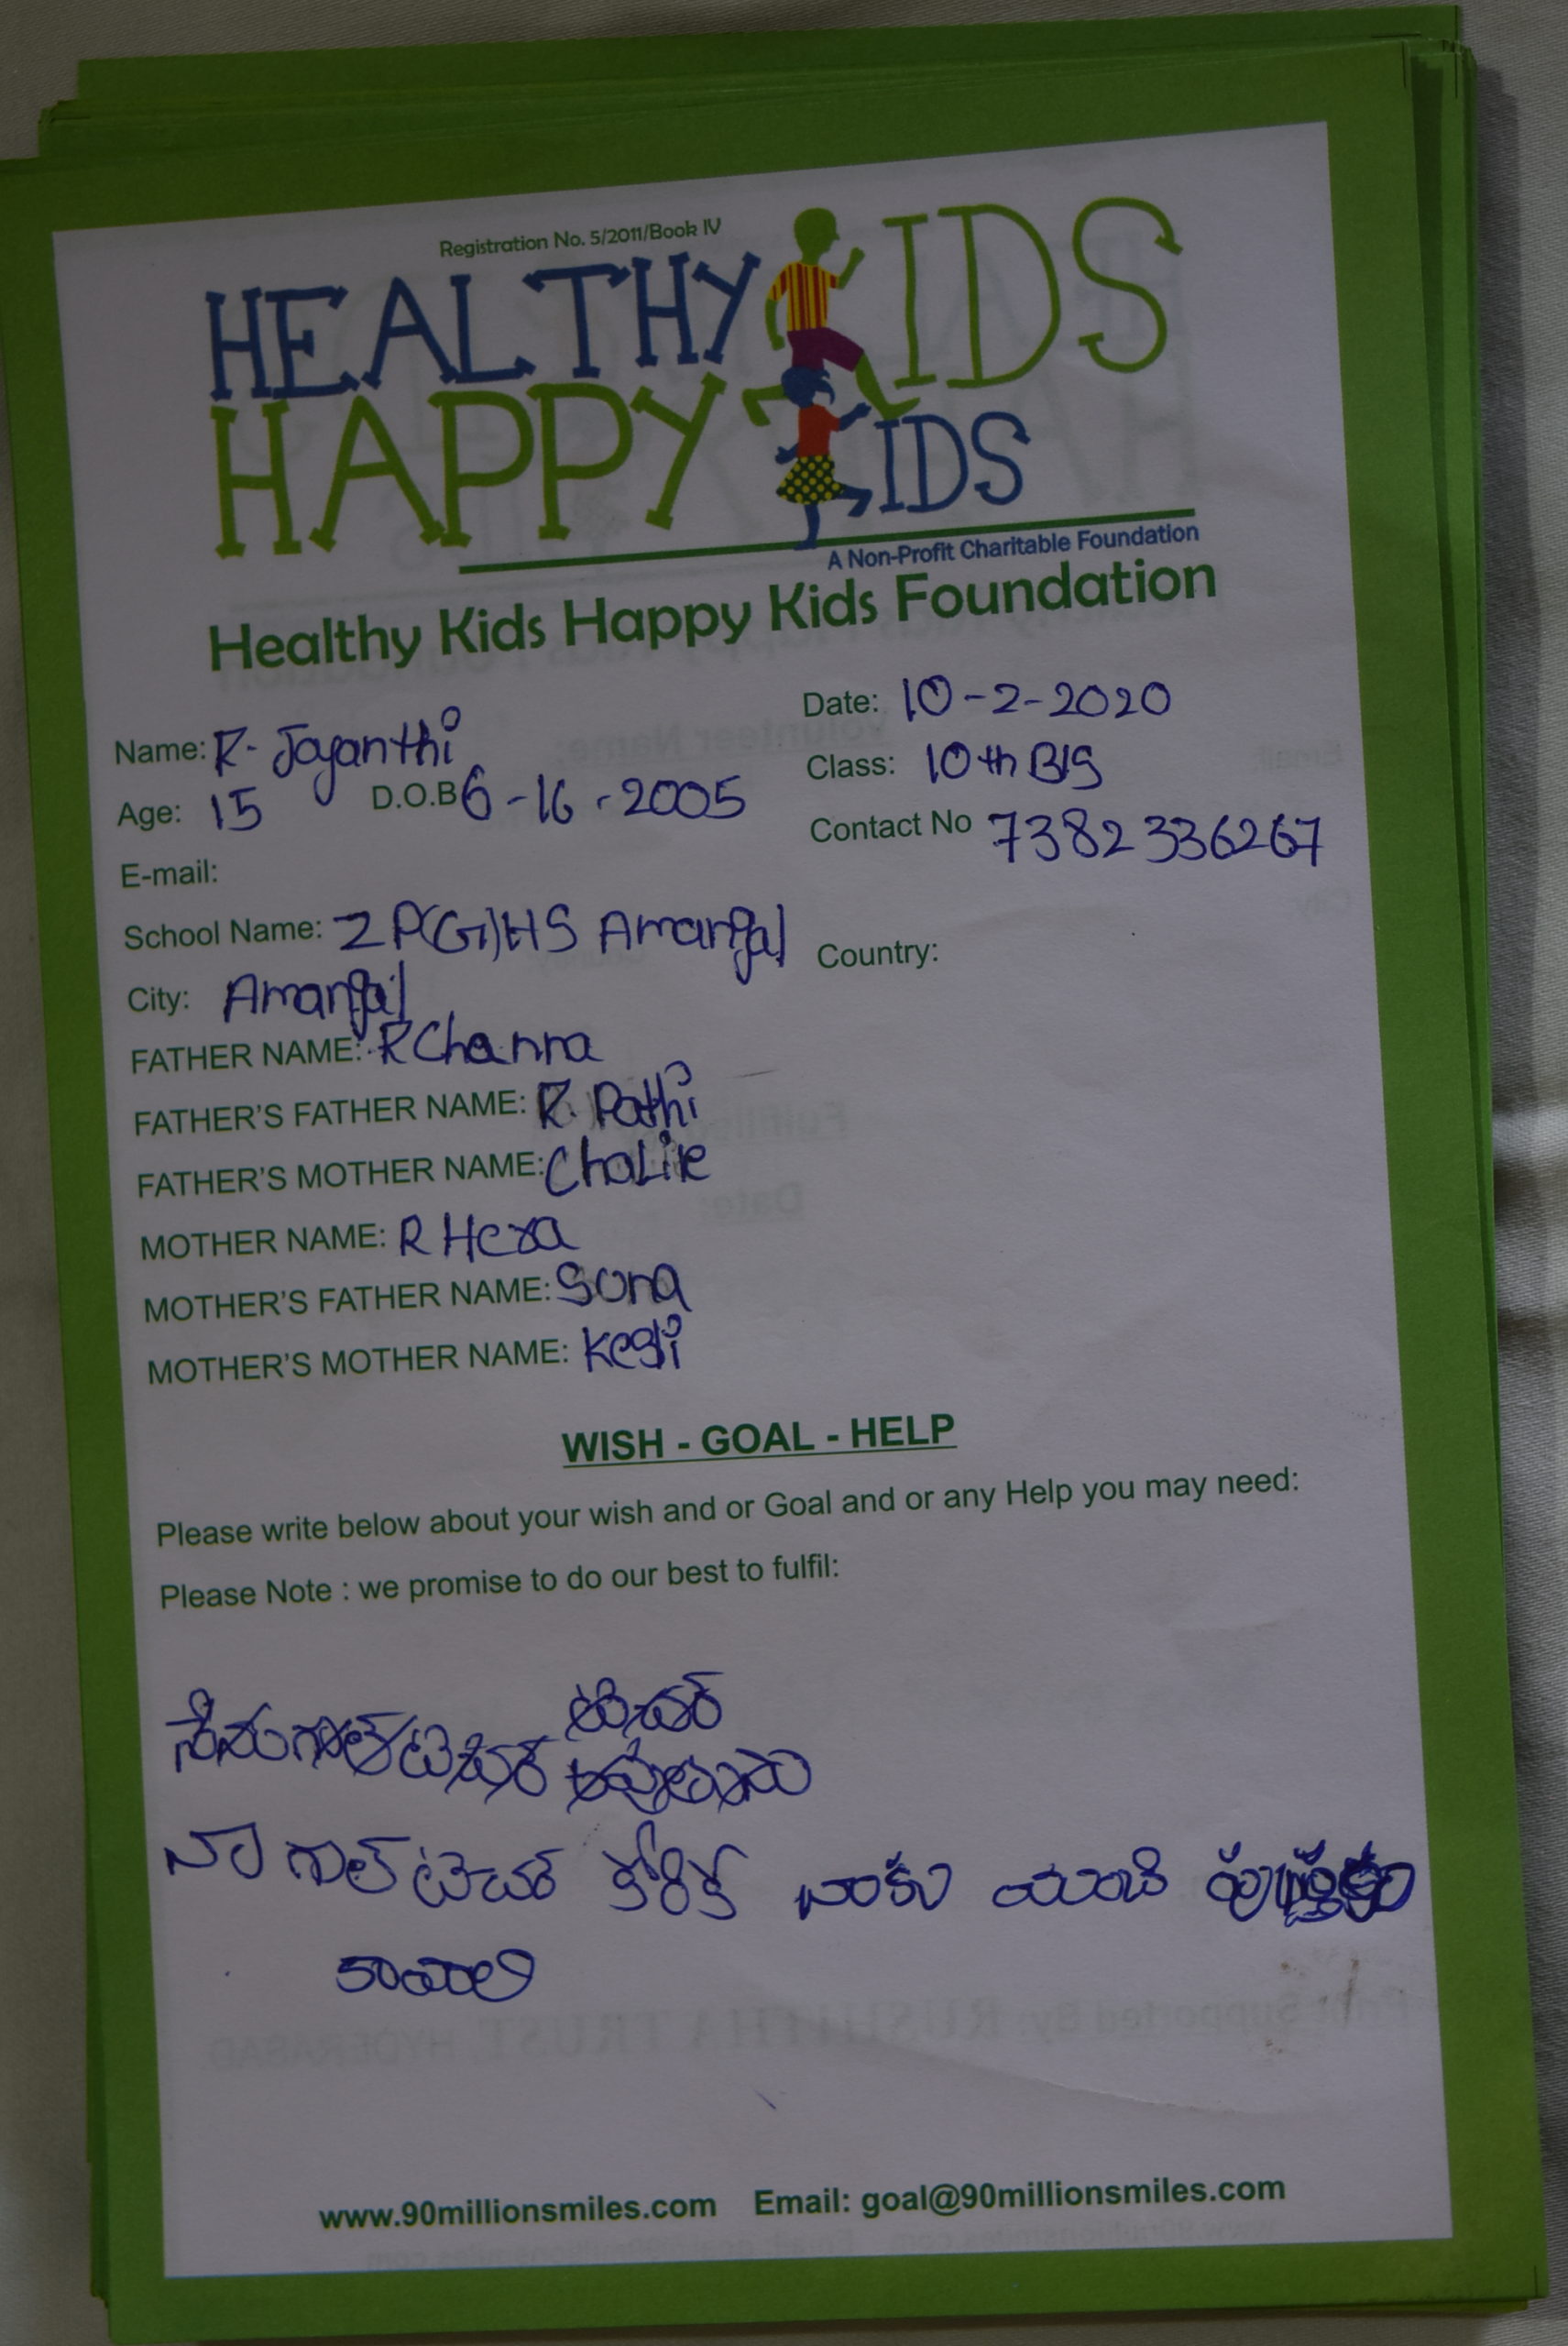 Registration No. 5/2011/Book IV
HEALTHY KIDS
HAPPY KIDS
A Non-Profit Charitable Foundation
Healthy Kids Happy Kids Foundation
Date: 10-2-2020
Name: R. Jayanthi
Class: 10th B/S
Age: 15 D.O.B 6-16-2005
Contact No 7382336267
E-mail:
School Name: Z P(G)HS Amangal
Country:
City: Amangal
FATHER NAME: R Channa
FATHER'S FATHER NAME: R. Pathi
FATHER'S MOTHER NAME:
MOTHER NAME: R Hera
MOTHER'S FATHER NAME: Sona
MOTHER'S MOTHER NAME: Kesli
WISH - GOAL - HELP
Please write below about your wish and or Goal and or any Help you may need:
Please Note : we promise to do our best to fulfil:
టిచర్
నేను గాల్ టిచర్ అవుతాను
నా గాల్ టిచర్ కోరిక నాకు మంచి
కావాలి
www.90millionsmiles.com Email: goal@90millionsmiles.com